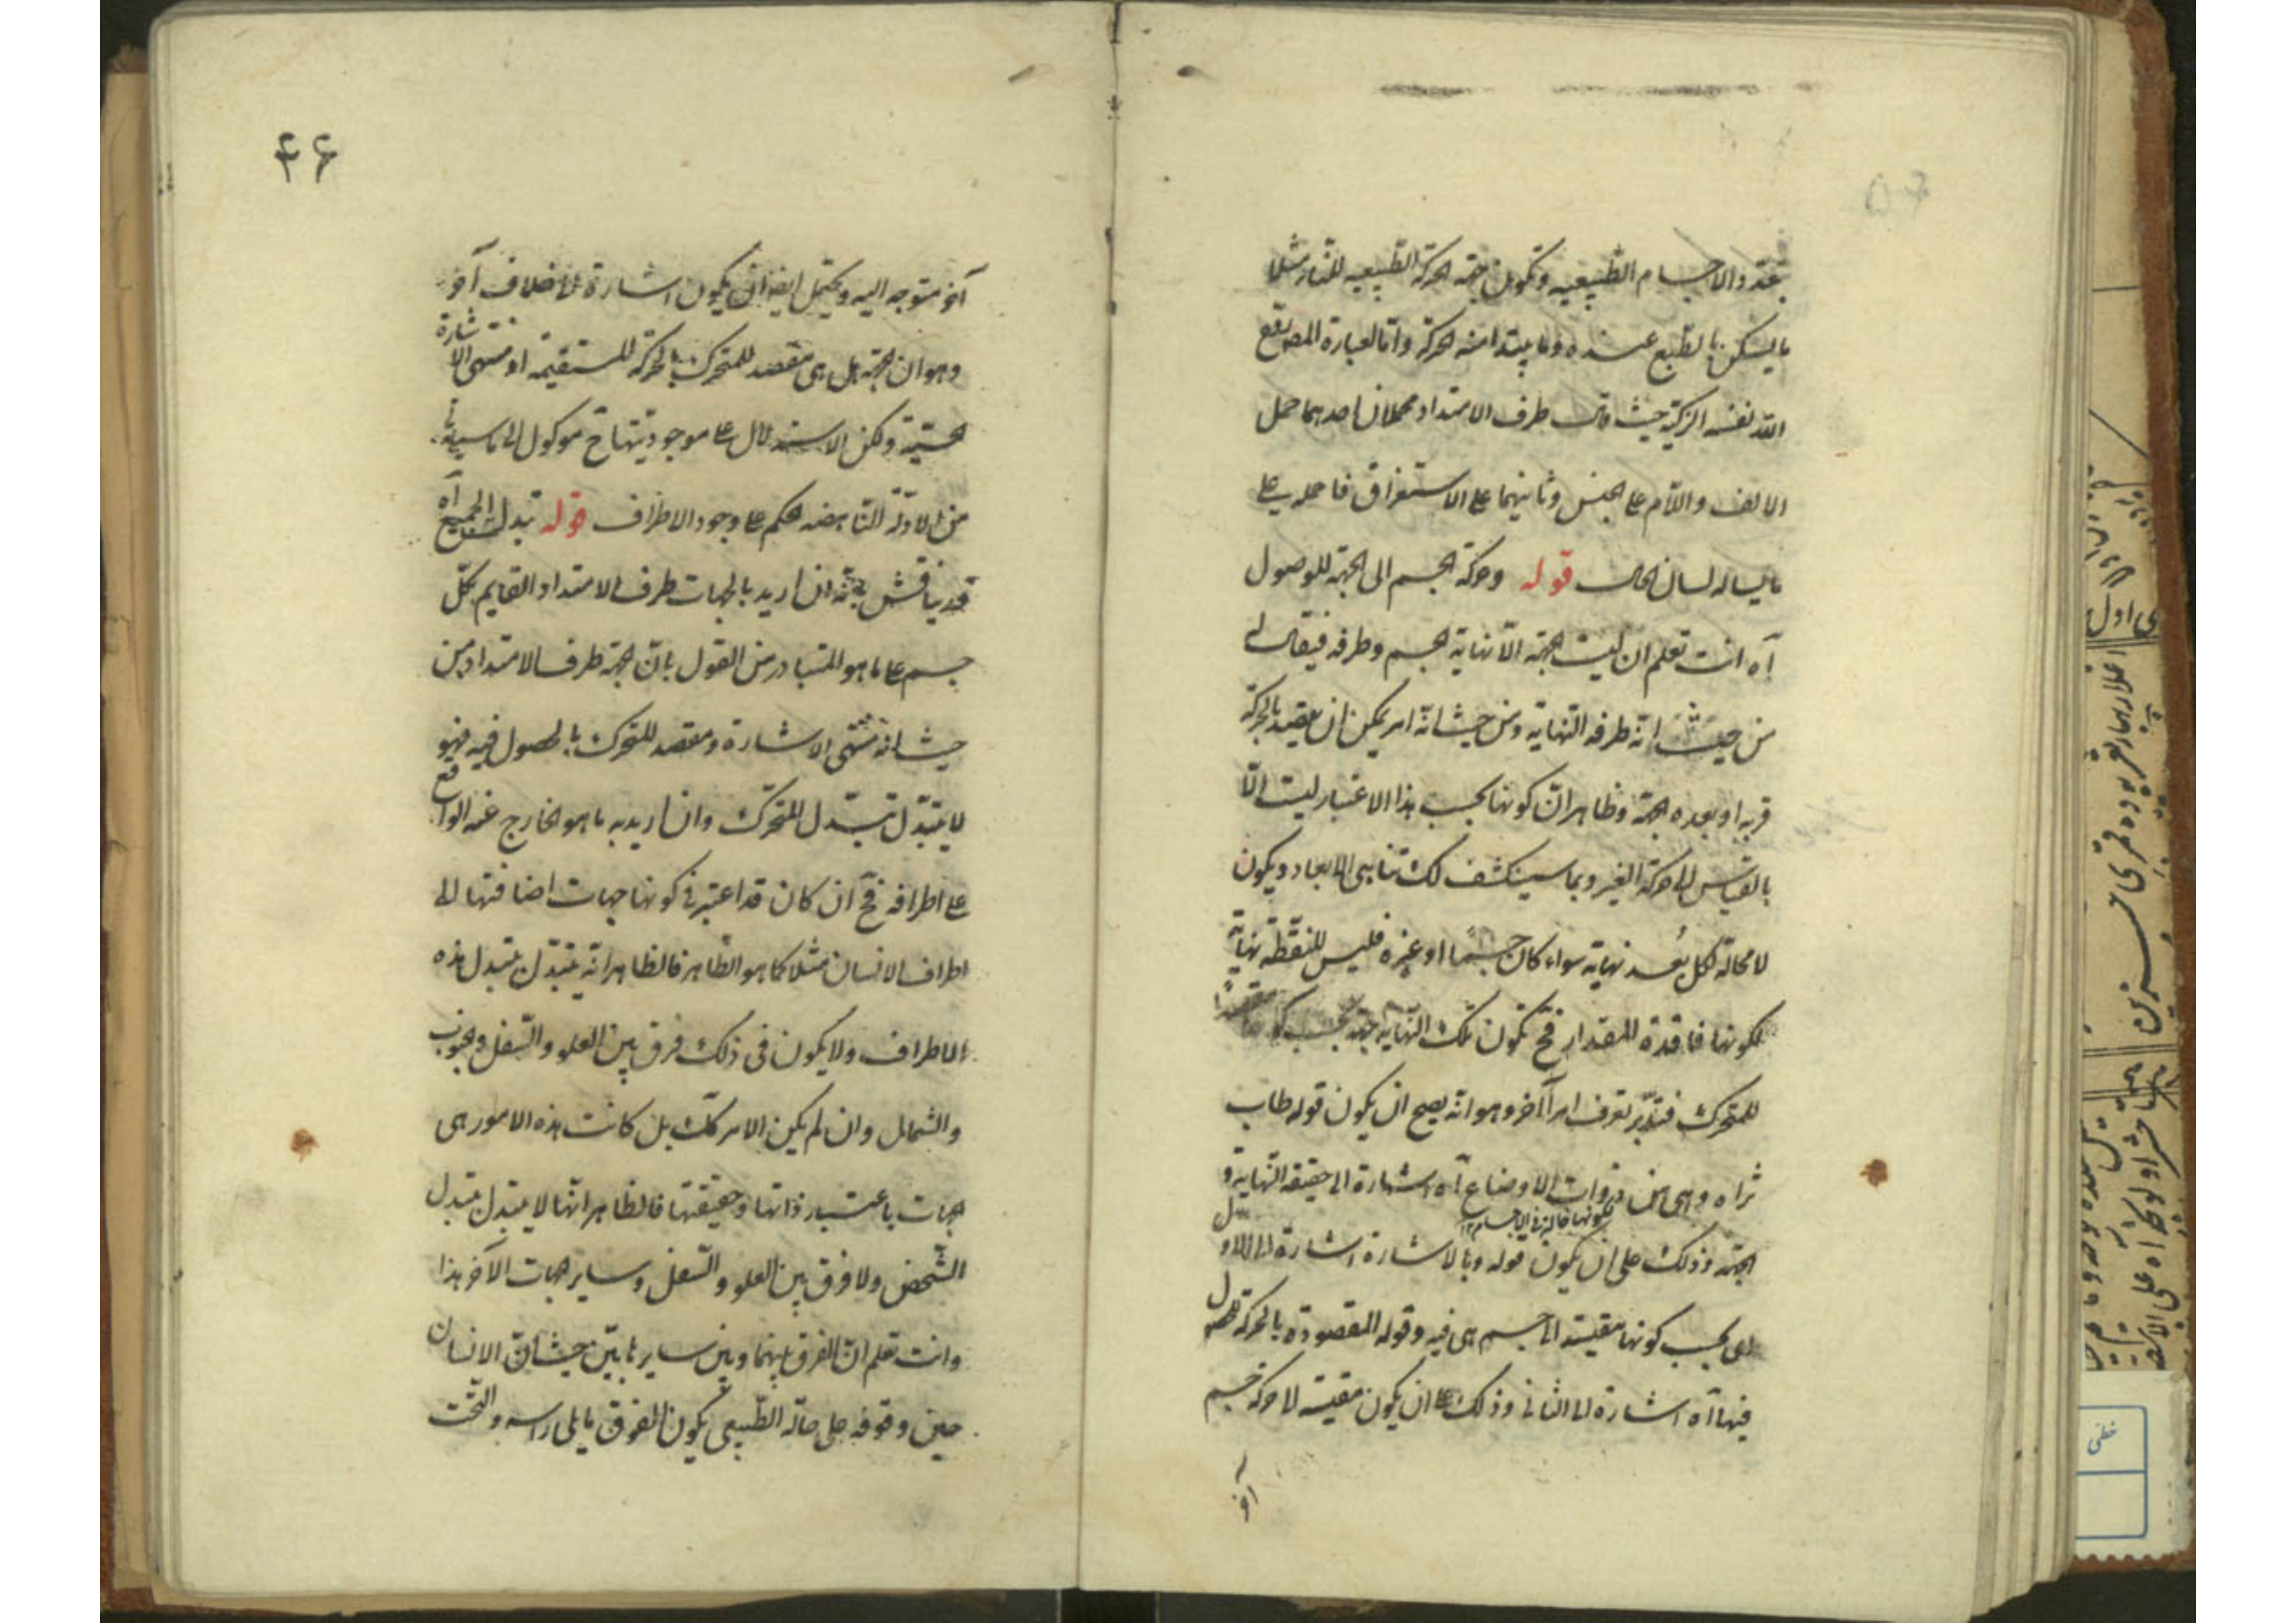 بتعدد الاجسام الطبيعيه وتكون جهة الحركة الطبيعيه للنار مثلا
ما يسكن بالطبع عنده وما يبتدا منه الحركة واما لعبارة المص قدس
الله نفسه الزكية حيث قال طرف الامتداد محملان احدهما حمل
الالف واللام على الجنس وثانيهما على الاستغراق فاحمله على
ما يساله لسان الحال قوله وحركة الجسم الى الجهة للوصول
آه انت تعلم ان ليست الجهة الا نهاية الجسم وطرفه فيقال لـه
من حيث انه طرفه النهاية ومن حيث انه امر يمكن ان يقصد بالحركة
قربه او بعده الجهة وظاهر ان كونها بحسب هذا الاعتبار ليست الا
بالقياس الى حركة الغير وبما سينكشف لك تناهى الابعاد ويكون
لا محالة لكل بُعد نهاية سواء كان جسمًا او غيره فليس للنقطة نهاية
لكونها فاقدة للمقدار فح تكون تلك النهاية جهة بحسب
للمتحرك فتدبر تعرف امراً آخر وهو انه يصح ان يكون قوله طاب
ثراه وهى من ذوات الاوضاع آه اشارة الى حقيقة النهاية و
كونها فى الاجسام
الجهة وذلك على ان يكون قوله وبالاشارة اشارة الى الاول
اى بحسب كونها مقيسة الى جسم هى فيه وقوله المقصودة بالحركة للحصول
فيها آه اشارة الى الثانى وذلك على ان يكون مقيسة الى حركة جسم
آخر
۴۶
آخر متوجه اليه ويحتمل ايضا ان يكون اشارة الى خلاف آخر
وهو ان الجهة هل هى مقصد للمتحرك بالحركة المستقيمة او منتهى الاشارة
الحسية ولكن الاستدلال على موجوديتها ح موكول الى ما سياتى
من الادلة الناهضه لحكم على وجود الاطراف قوله تبدل الجميع آه
قد يناقش بانه ان اريد بالجهات طرف الامتداد القايم بكل
جسم على ما هو المتبادر من القول بان الجهة طرف الامتداد من
حيث انه منتهى الاشارة ومقصد للمتحرك بالحصول فيه فهو
لا يتبدل بتبدل المتحرك وان اريد به ما هو الخارج عنه الواقع
على اطرافه فح ان كان قد اعتبر فى كونها جهات اضافتها الى
اطراف الانسان مثلا كما هو الظاهر فالظاهر انه يتبدل بتبدل هذه
الاطراف ولا يكون فى ذلك فرق بين العلو والسفل والجنوب
والشمال وان لم يكن الامر كك بل كانت هذه الامور هى
الجهات باعتبار ذاتها وحقيقتها فالظاهر انها لا يتبدل بتبدل
الشخص ولا فرق بين العلو والسفل وساير جهات الآخر هذا
وانت تعلم ان الفرق بينهما وبين سايرها بيّن حيث ان الانسان
حين وقوفه على حاله الطبيعى يكون الفوق ما يلى راسه والتحت
خطى